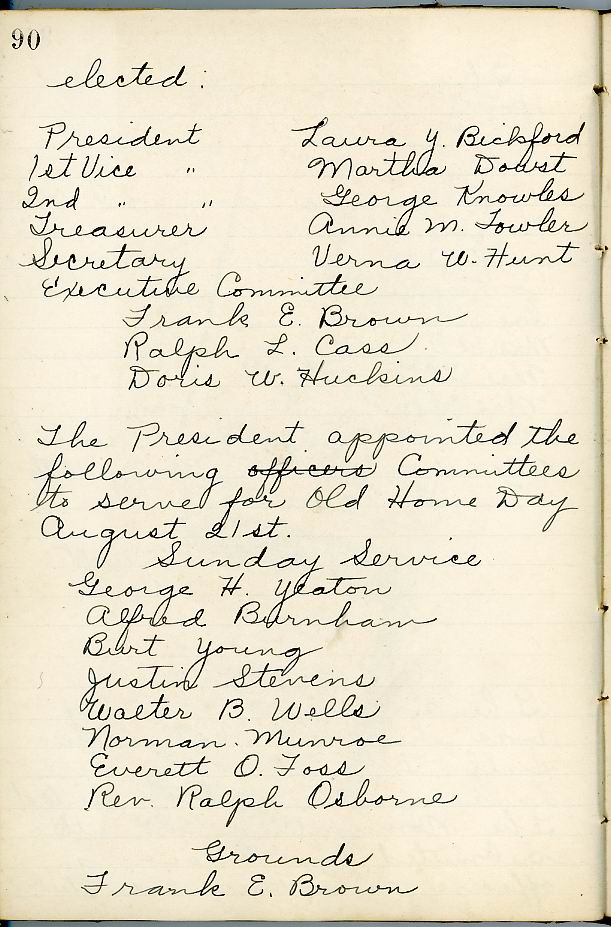 90
elected:
President Laura Y. Bickford
1st Vice " Martha Dowst
2nd " " George Knowles
Treasurer Annie M. Fowler
Secretary Verna W. Hunt
Executive Committee
Frank E. Brown
Ralph L. Cass
Doris W. Huckins
The President appointed the
following officers Committees
to serve for Old Home Day
August 21st.
Sunday Service
George H. Yeaton
Alfred Burnham
Burt Young
Justin Stevens
Walter B. Wells
Norman Munroe
Everett O. Foss
Rev. Ralph Osborne
Grounds
Frank E. Brown